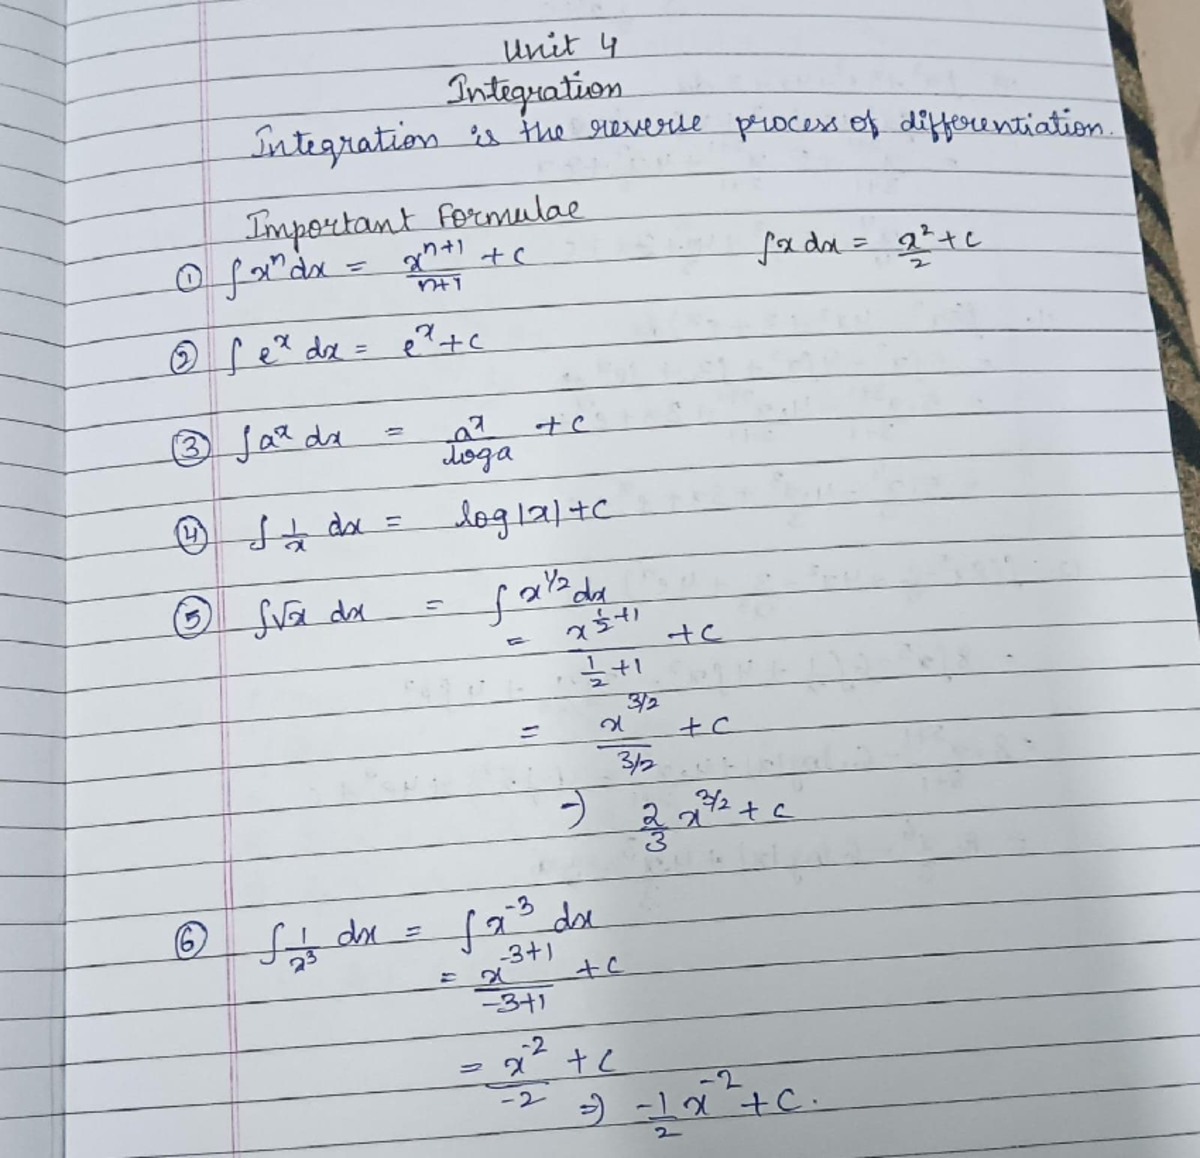 Unit 4
Integration
Integration is the reverse process of differentiation.
Important Formulae
① ∫xⁿ dx = xⁿ⁺¹/n+1 + c    ∫x dx = x²/2 + c
② ∫ eˣ dx = eˣ + c
③ ∫aˣ dx = aˣ/loga + c
④ ∫ 1/x dx = log|x| + c
⑤ ∫√x dx = ∫ x^1/2 dx
= x^(1/2+1)/(1/2+1) + c
= x^3/2/(3/2) + c
⇒ 2/3 x^3/2 + c
⑥ ∫ 1/x³ dx = ∫ x⁻³ dx
= x^(-3+1)/(-3+1) + c
= x⁻²/-2 + c
⇒ -1/2 x⁻² + c.